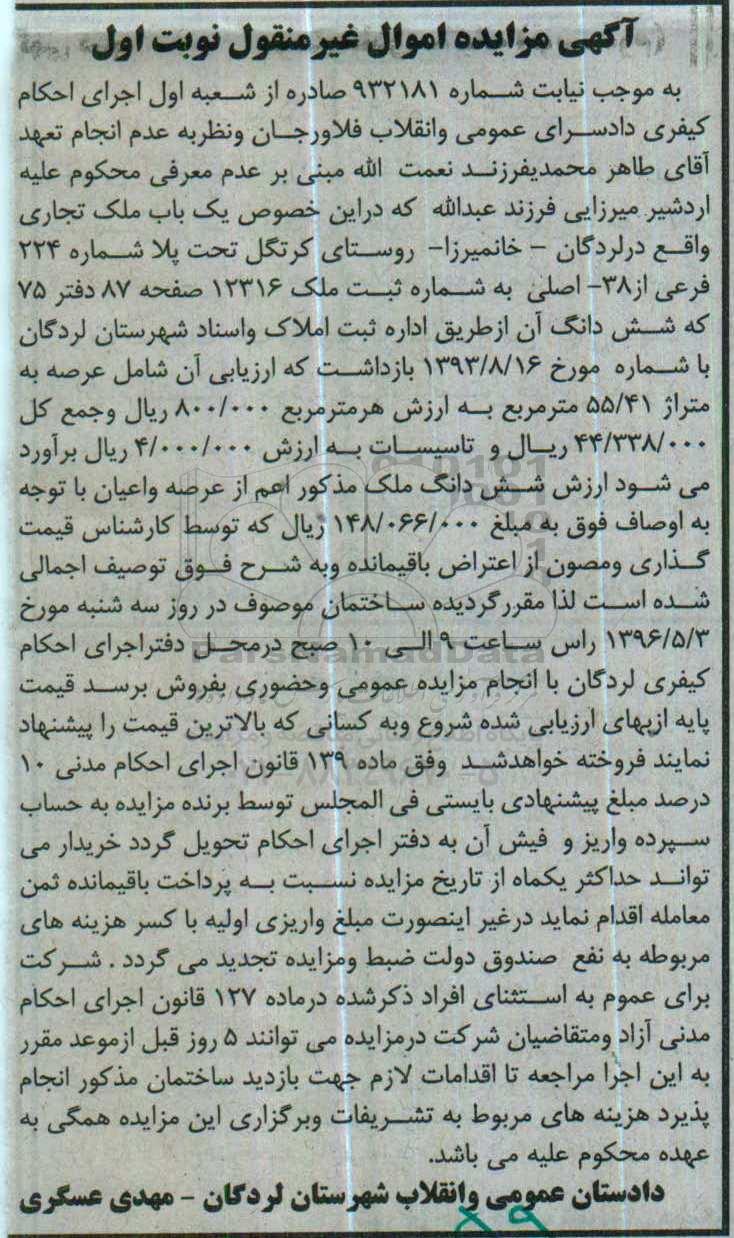 آگهی مزایده اموال غیرمنقول نوبت اول
به موجب نیابت شماره ۹۳۲۱۸۱ صادره از شعبه اول اجرای احکام
کیفری دادسرای عمومی وانقلاب فلاورجان ونظربه عدم انجام تعهد
آقای طاهر محمدیفرزند نعمت الله مبنی بر عدم معرفی محکوم علیه
اردشیر میرزایی فرزند عبدالله که دراین خصوص یک باب ملک تجاری
واقع درلردگان - خانمیرزا- روستای کرتگل تحت پلا شماره ۲۲۴
فرعی از۳۸- اصلی به شماره ثبت ملک ۱۲۳۱۶ صفحه ۸۷ دفتر ۷۵
که شش دانگ آن ازطریق اداره ثبت املاک واسناد شهرستان لردگان
با شماره مورخ ۱۳۹۳/۸/۱۶ بازداشت که ارزیابی آن شامل عرصه به
متراژ ۵۵/۴۱ مترمربع به ارزش هرمترمربع ۸۰۰/۰۰۰ ریال وجمع کل
۴۴/۳۳۸/۰۰۰ ریال و تاسیسات به ارزش ۴/۰۰۰/۰۰۰ ریال برآورد
می شود ارزش شش دانگ ملک مذکور اعم از عرصه واعیان با توجه
به اوصاف فوق به مبلغ ۱۴۸/۰۶۶/۰۰۰ ریال که توسط کارشناس قیمت
گذاری ومصون از اعتراض باقیمانده وبه شرح فوق توصیف اجمالی
شده است لذا مقررگردیده ساختمان موصوف در روز سه شنبه مورخ
۱۳۹۶/۵/۳ راس ساعت ۹ الی ۱۰ صبح درمحل دفتراجرای احکام
کیفری لردگان با انجام مزایده عمومی وحضوری بفروش برسد قیمت
پایه ازبهای ارزیابی شده شروع وبه کسانی که بالاترین قیمت را پیشنهاد
نمایند فروخته خواهدشد وفق ماده ۱۳۹ قانون اجرای احکام مدنی ۱۰
درصد مبلغ پیشنهادی بایستی فی المجلس توسط برنده مزایده به حساب
سپرده واریز و فیش آن به دفتر اجرای احکام تحویل گردد خریدار می
تواند حداکثر یکماه از تاریخ مزایده نسبت به پرداخت باقیمانده ثمن
معامله اقدام نماید درغیر اینصورت مبلغ واریزی اولیه با کسر هزینه های
مربوطه به نفع صندوق دولت ضبط ومزایده تجدید می گردد . شرکت
برای عموم به استثنای افراد ذکرشده درماده ۱۲۷ قانون اجرای احکام
مدنی آزاد ومتقاضیان شرکت درمزایده می توانند ۵ روز قبل ازموعد مقرر
به این اجرا مراجعه تا اقدامات لازم جهت بازدید ساختمان مذکور انجام
پذیرد هزینه های مربوط به تشریفات وبرگزاری این مزایده همگی به
عهده محکوم علیه می باشد.
دادستان عمومی وانقلاب شهرستان لردگان - مهدی عسگری
ParsNamadData